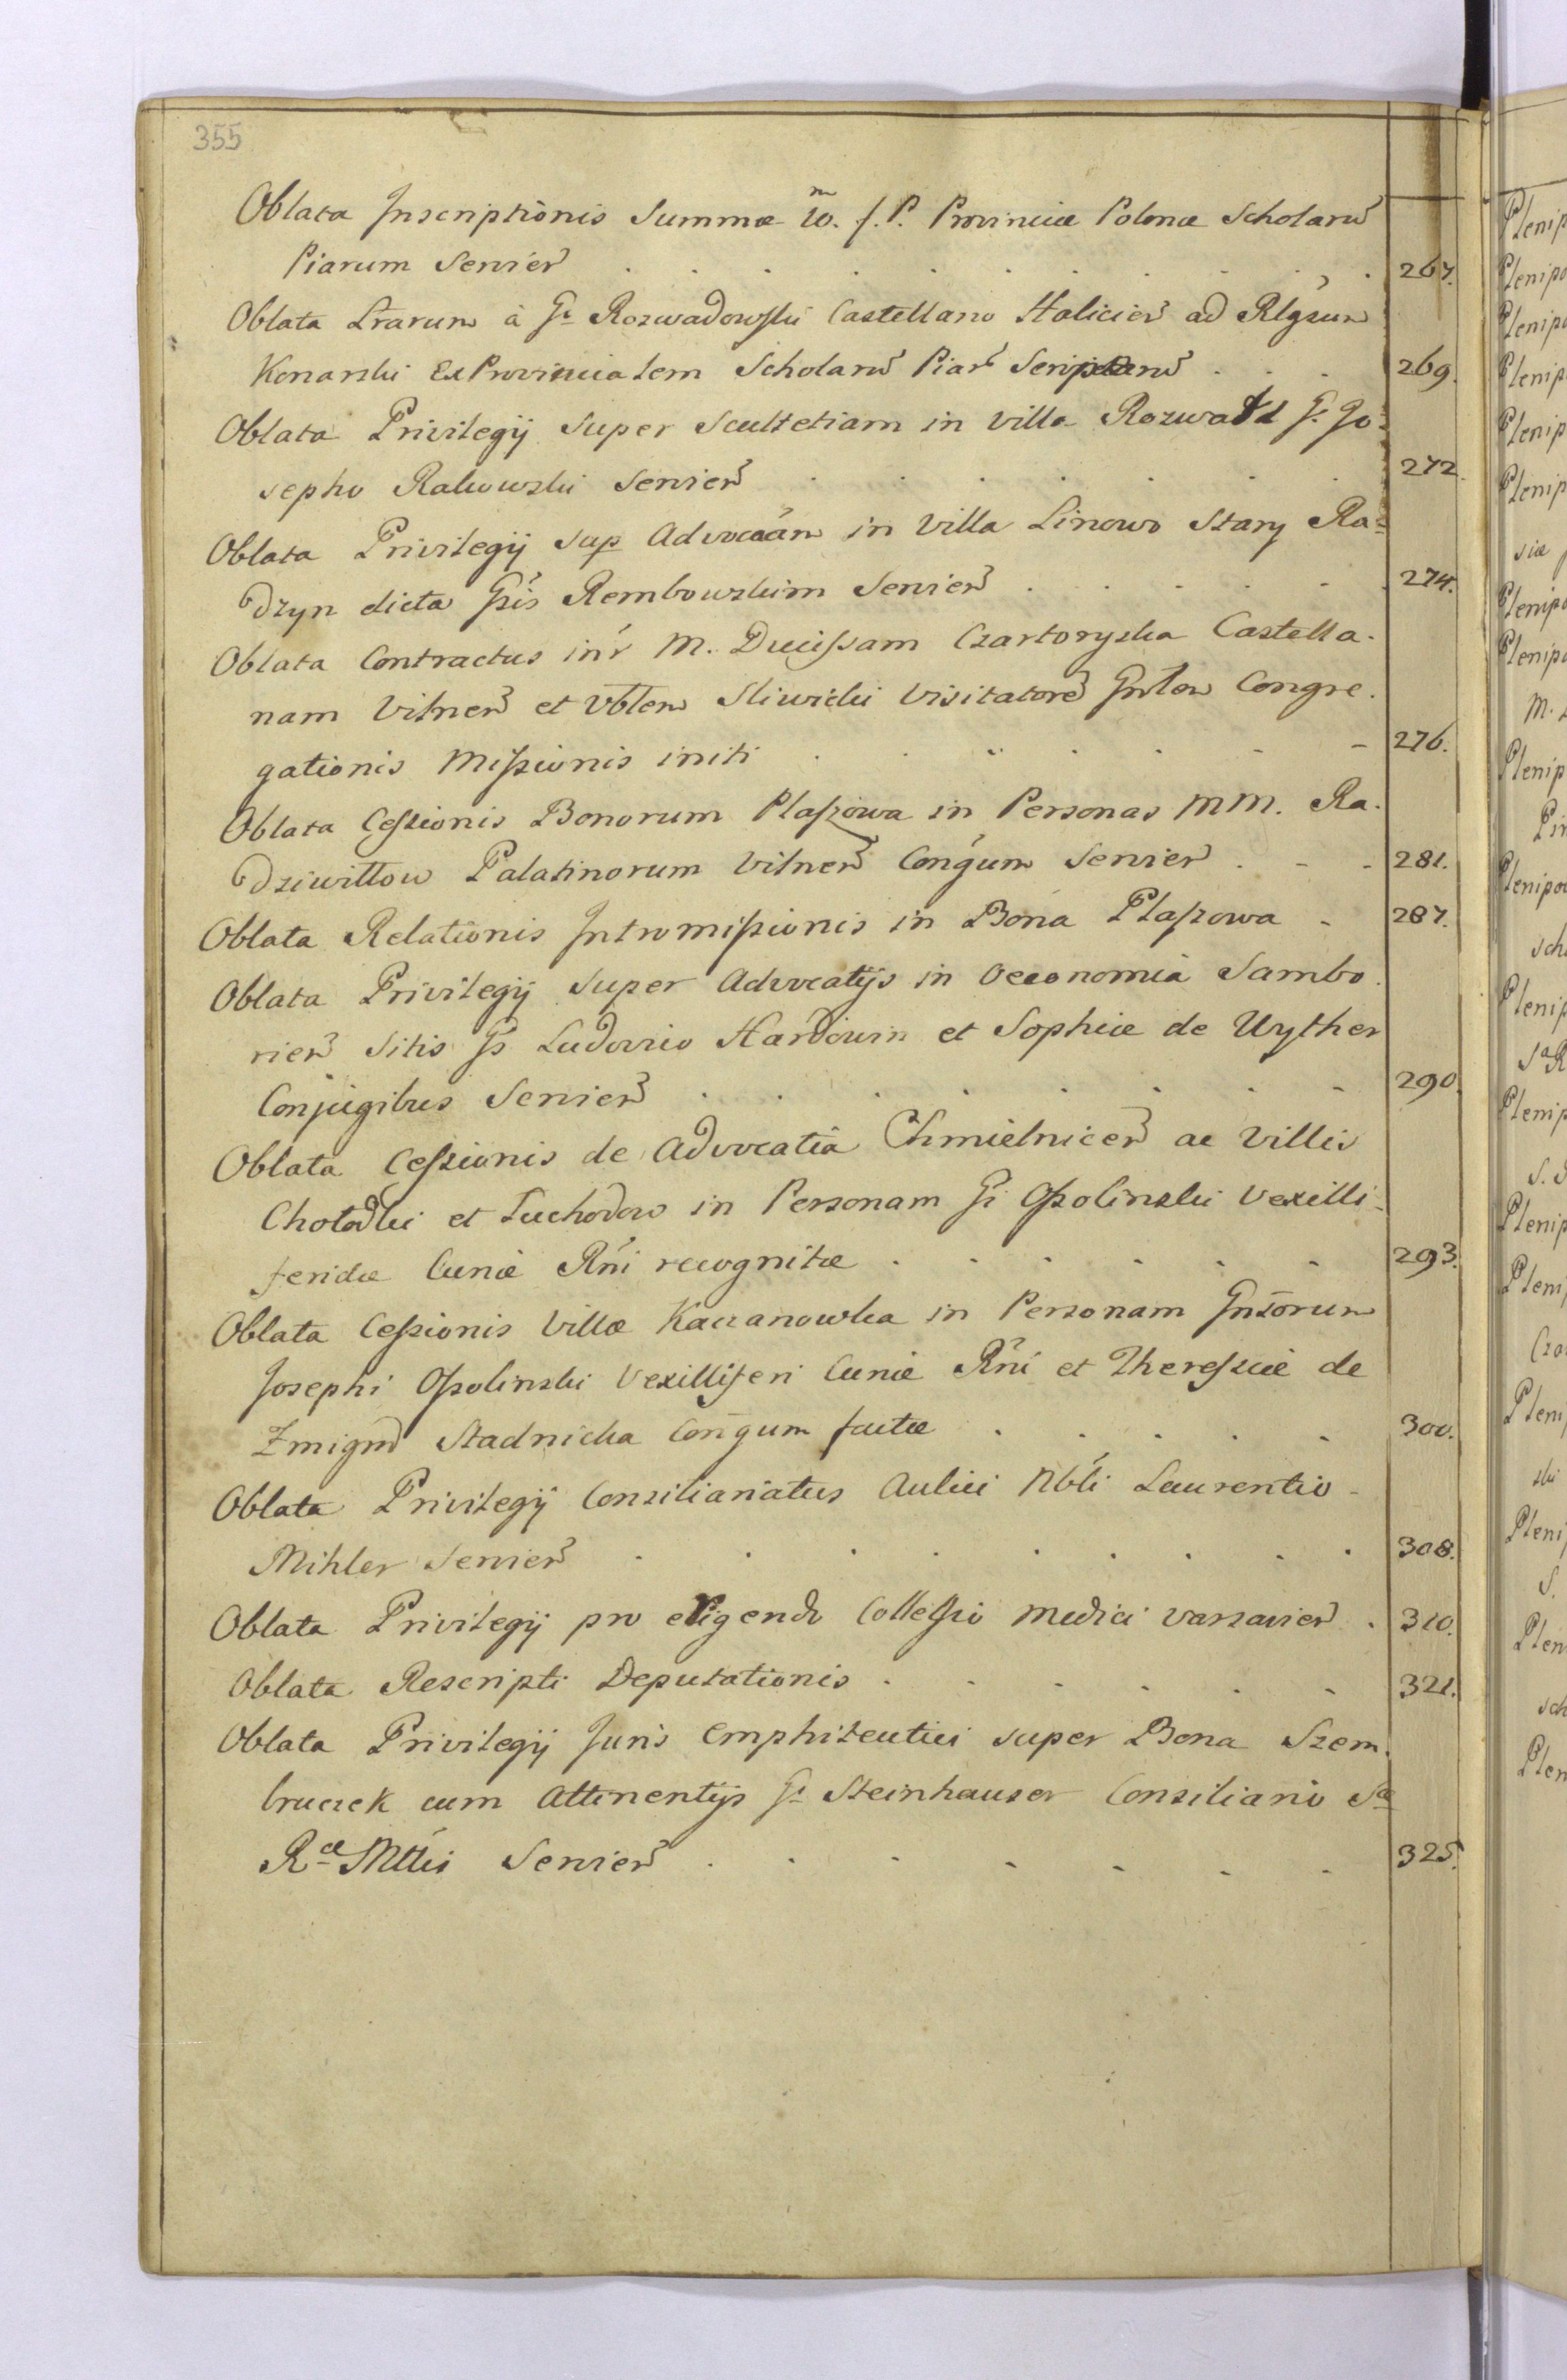 355
Oblata Inscriptionis Summæ 10. f. P. Provinciæ Polonæ Scholaru
Piarum Servien 267.
Oblata Lrarum à G Rozwadowski Castellano Halicien ad Rlgsum
Konarski ExProvincialem Scholaru Piar Scriptaru 269.
Oblata Privilegij super Scultetiam in villa Rozwadd G. Jo
sepho Rakowski Servien 272.
Oblata Privilegij sup Advocaan in Villa Linowo Stary Ra
dzyn dicta Gsis Rembowskim Servien 274.
Oblata Contractus intr M. Ducissam Czartoryska Castella
nam Vilnen et Vblem Sliwicki Visitatore Gnlem Congre
gationis Missionis initi 276.
Oblata Cessionis Bonorum Plaszowa in Personas MM. Ra
dziwiłłow Palatinorum Vilnen Congum Servien 281.
Oblata Relationis Intromissionis in Bona Plaszowa 287.
Oblata Privilegij super Advocatijs in Oeconomia Sambo
rien Sitis Gs Ludovico Hardouin et Sophiæ de Uyther
Conjugibus Servien 290.
Oblata Cessionis de Advocatia Chmielnicen ac Villis
Chołodki et Suchodow in Personam Gi Ossolinski Vexilli
feridæ Curiæ Rni recognitæ 293.
Oblata Cessionis Villæ Kaczanowka in Personam Gnsorum
Josephi Ossolinski Vexilliferi Curiæ Rni et Theressiæ de
Zmigrod Stadnicka Congum factæ 300.
Oblata Privilegij Consiliariatus Aulici Nbli Laurentio
Mihler Servien 308.
Oblata Privilegij pro erigendo Collegio Medici Varsavien 310.
Oblata Rescripti Deputationis 321.
Oblata Privilegij Juris Emphiteutici super Bona Szem
bruczek cum Attinentijs G Steinhauser Consiliario Sæ
Ræ Mttis Servien 325.